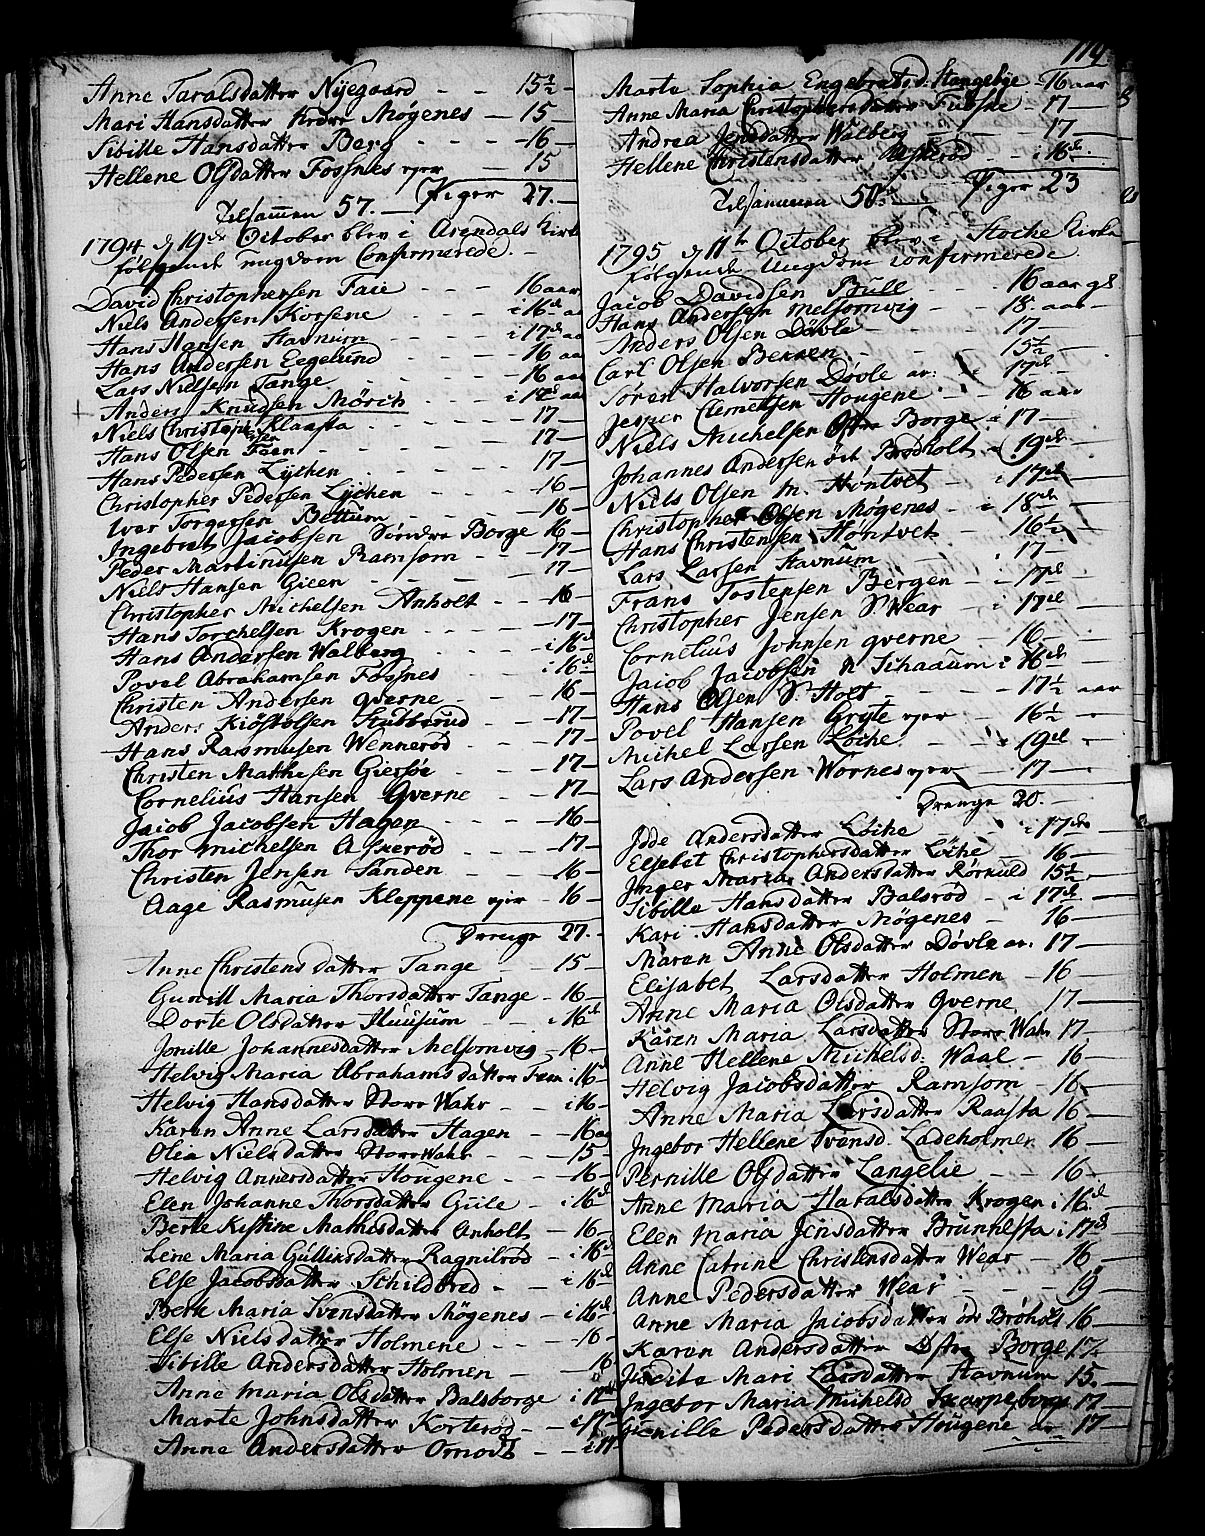 Anne Taralsdatter Nÿegaard - - 15½ -
Mari Hansdatter Nedre Møgenes - 15 -
Sibille Hansdatter Berg - - - - 16 -
Hellene Olsdatter Fossnes - 15
Piger 27. -
Tilsamen 57. -
1794 d 19de October blev i Arendals Kirke
følgende ungdom Confirmerede. -
David Christophersen Faie - - - 16 aar
Niels Andersen Korsene - - - i 16de aa
Hans Hansen Stavnum - - - i 17de aa
Hans Andersen Eegelund - - - 16 aa
Lars Nielsen Tange - - - 16 aar
+ Anders Knudsen Mørch - - - i 17de aar
Niels Christophersen Klaasta - - - 17 -
Hans Olsen Faen - - - 17 -
Hans Pedersen Lÿchen - - - 17 -
Christopher Pedersen Lÿchen - - - 16 -
Iver Torgersen Bettum - - - 16 -
Ingebret Jacobsen Søndre Borge 16 -
Peder Martinusen Ramsom - - 17 -
Niels Hansen Gieen - - - 17 -
Christopher Michelsen Anholt - - 16 -
Hans Torchelsen Krogen - - - 17 -
Hans Andersen Walberg - - - i 16de
Povel Abrahamsen Fossnes - - i 16de
Christen Andersen Qverne - - - 16 -
Anders Kiøstolsen Stubberud - - 17 -
Hans Rasmusen Wennerød - - - 17 -
Christen Mathisen Giersøe - - - 17 -
Cornelius Hansen Qverne - - - 17 -
Jacob Jacobsen Hagen - - - 16 -
Thor Michelsen Askerød - - - 17 -
Christen Jensen Sanden - - - 16 -
Aage Rasmusen Kleppene - 16 -
Drenge 27. -
Anne Christensdatter Tange - - 15 -
Gunill Maria Thorsdatter Tange - 16 -
Dorte Olsdatter Huusum - - i 16de
Jonille Johannesdatter Melsomvig - 16 -
Helvig Maria Abrahamsdatter Faen i 16de
Helvig Hansdatter Store Wahr - - i 16 -
Karen Anne Larsdatter Hagen - - 16 aa
Olea Nielsdatter Store Wahr - - 15 -
Helvig Annersdatter Hougene - - 16 -
Elen Johanne Thorsdatter Guile - i 16de
Berte Kistine Mathisdatter Anholt - 16 -
Lene Maria Gullicksdatter Ragnilrød - i 16de
Else Jacobsdatter Schildbred - - i 16de
Berte Maria Svensdatter Møgenes - i 16de
Else Nielsdatter Holmene - - - 16 -
Sibille Andersdatter Holmen - - 16
Anne Maria Olsdatter Balsborge i 17de
Marte Johnsdatter Korterød - - i 17de
Anne Andersdatter Ornodt - - i 17
114.
Marte Sophia Engebretsd: Stangebye 16 aar
Anne Maria Christophersdatter Fuoske 17 -
Andrea Jensdatter Walberg - - - 17 -
Hellene Christensdatter Askerød - - i 16de
Piger 23
Tilsammen 50 -
1795 d 11te October blev i Stocke Kirke
følgende Ungdom confirmerede
Jacob Davidsen Bull - - - 16 aar gl
Hans Andersen Melsomvig - - 18 aar
Anders Olsen Døvle - - - 17 -
Carl Olsen Bekken - - - 15½ -
Søren Halvorsen Døvle - i 17de
Jesper Clemetsen Hougene - - 16 aar
Niels Michelsen Østre Borge - i 17 -
Johannes Andersen øst Brodholt - i 19de
Niels Olsen N. Høntvet - i 17de
Christopher Olsen Møgenes - i 18de
Hans Christensen Høntvet - 16½ -
Lars Larsen Stavnum - - i 17 -
Frans Tostensen Bergen - - i 17de
Christopher Jensen S. Wear - i 17de
Cornelius Johnsen Qverne - 16 -
Jacob Jacobsen N Schaaum i 16de
Hans Olsen S. Holt - - - 17½ aar
Povel Hansen Gryte - 16½ -
Michel Larsen Løche - - - i 19de
Lars Andersen Wornes - 17 -
Drenge 20. -
Idde Andersdatter Løche - - i 17de
Elsebet Christophersdatter Løche - 16 -
Inger Maria Andersdatter Rørkuld 15½
Sibille Hansdatter Balsrød - i 17de
Kari Hansdatter Møgenes - 16 -
Maren Anne Olsdatter Døvle 17 -
Elisabet Larsdatter Holmen - 16 -
Anne Maria Olsdatter Qverne 17 -
Karen Maria Larsdatter Store Wahr 17 -
Anne Hellene Michelsd: Waal - 16 -
Helvig Jacobsdatter Ramsom - 16 -
Anne Maria Larsdatter Raasta 16 -
Ingebor Hellene Svensd. Ladeholmen 16 -
Pernille Olsdatter Langelie - - 16 -
Anne Maria Haralsdatter Krogen i 16de
Elen Maria Jensdatter Brunnesta i 17de
Anne Catrine Christensdatter Wear - 16 -
Anne Pedersdatter Wear - - - 19 -
Anne Maria Jacobsdatter ør Brøholt 16 -
Karen Andersdatter Østre Borge 17 -
Judite Mari Larsdatter Stavnum 15. -
Ingebor Maria Michelsd Skarpeborge 17 -
Gunille Pedersdatter Hougene 17 -